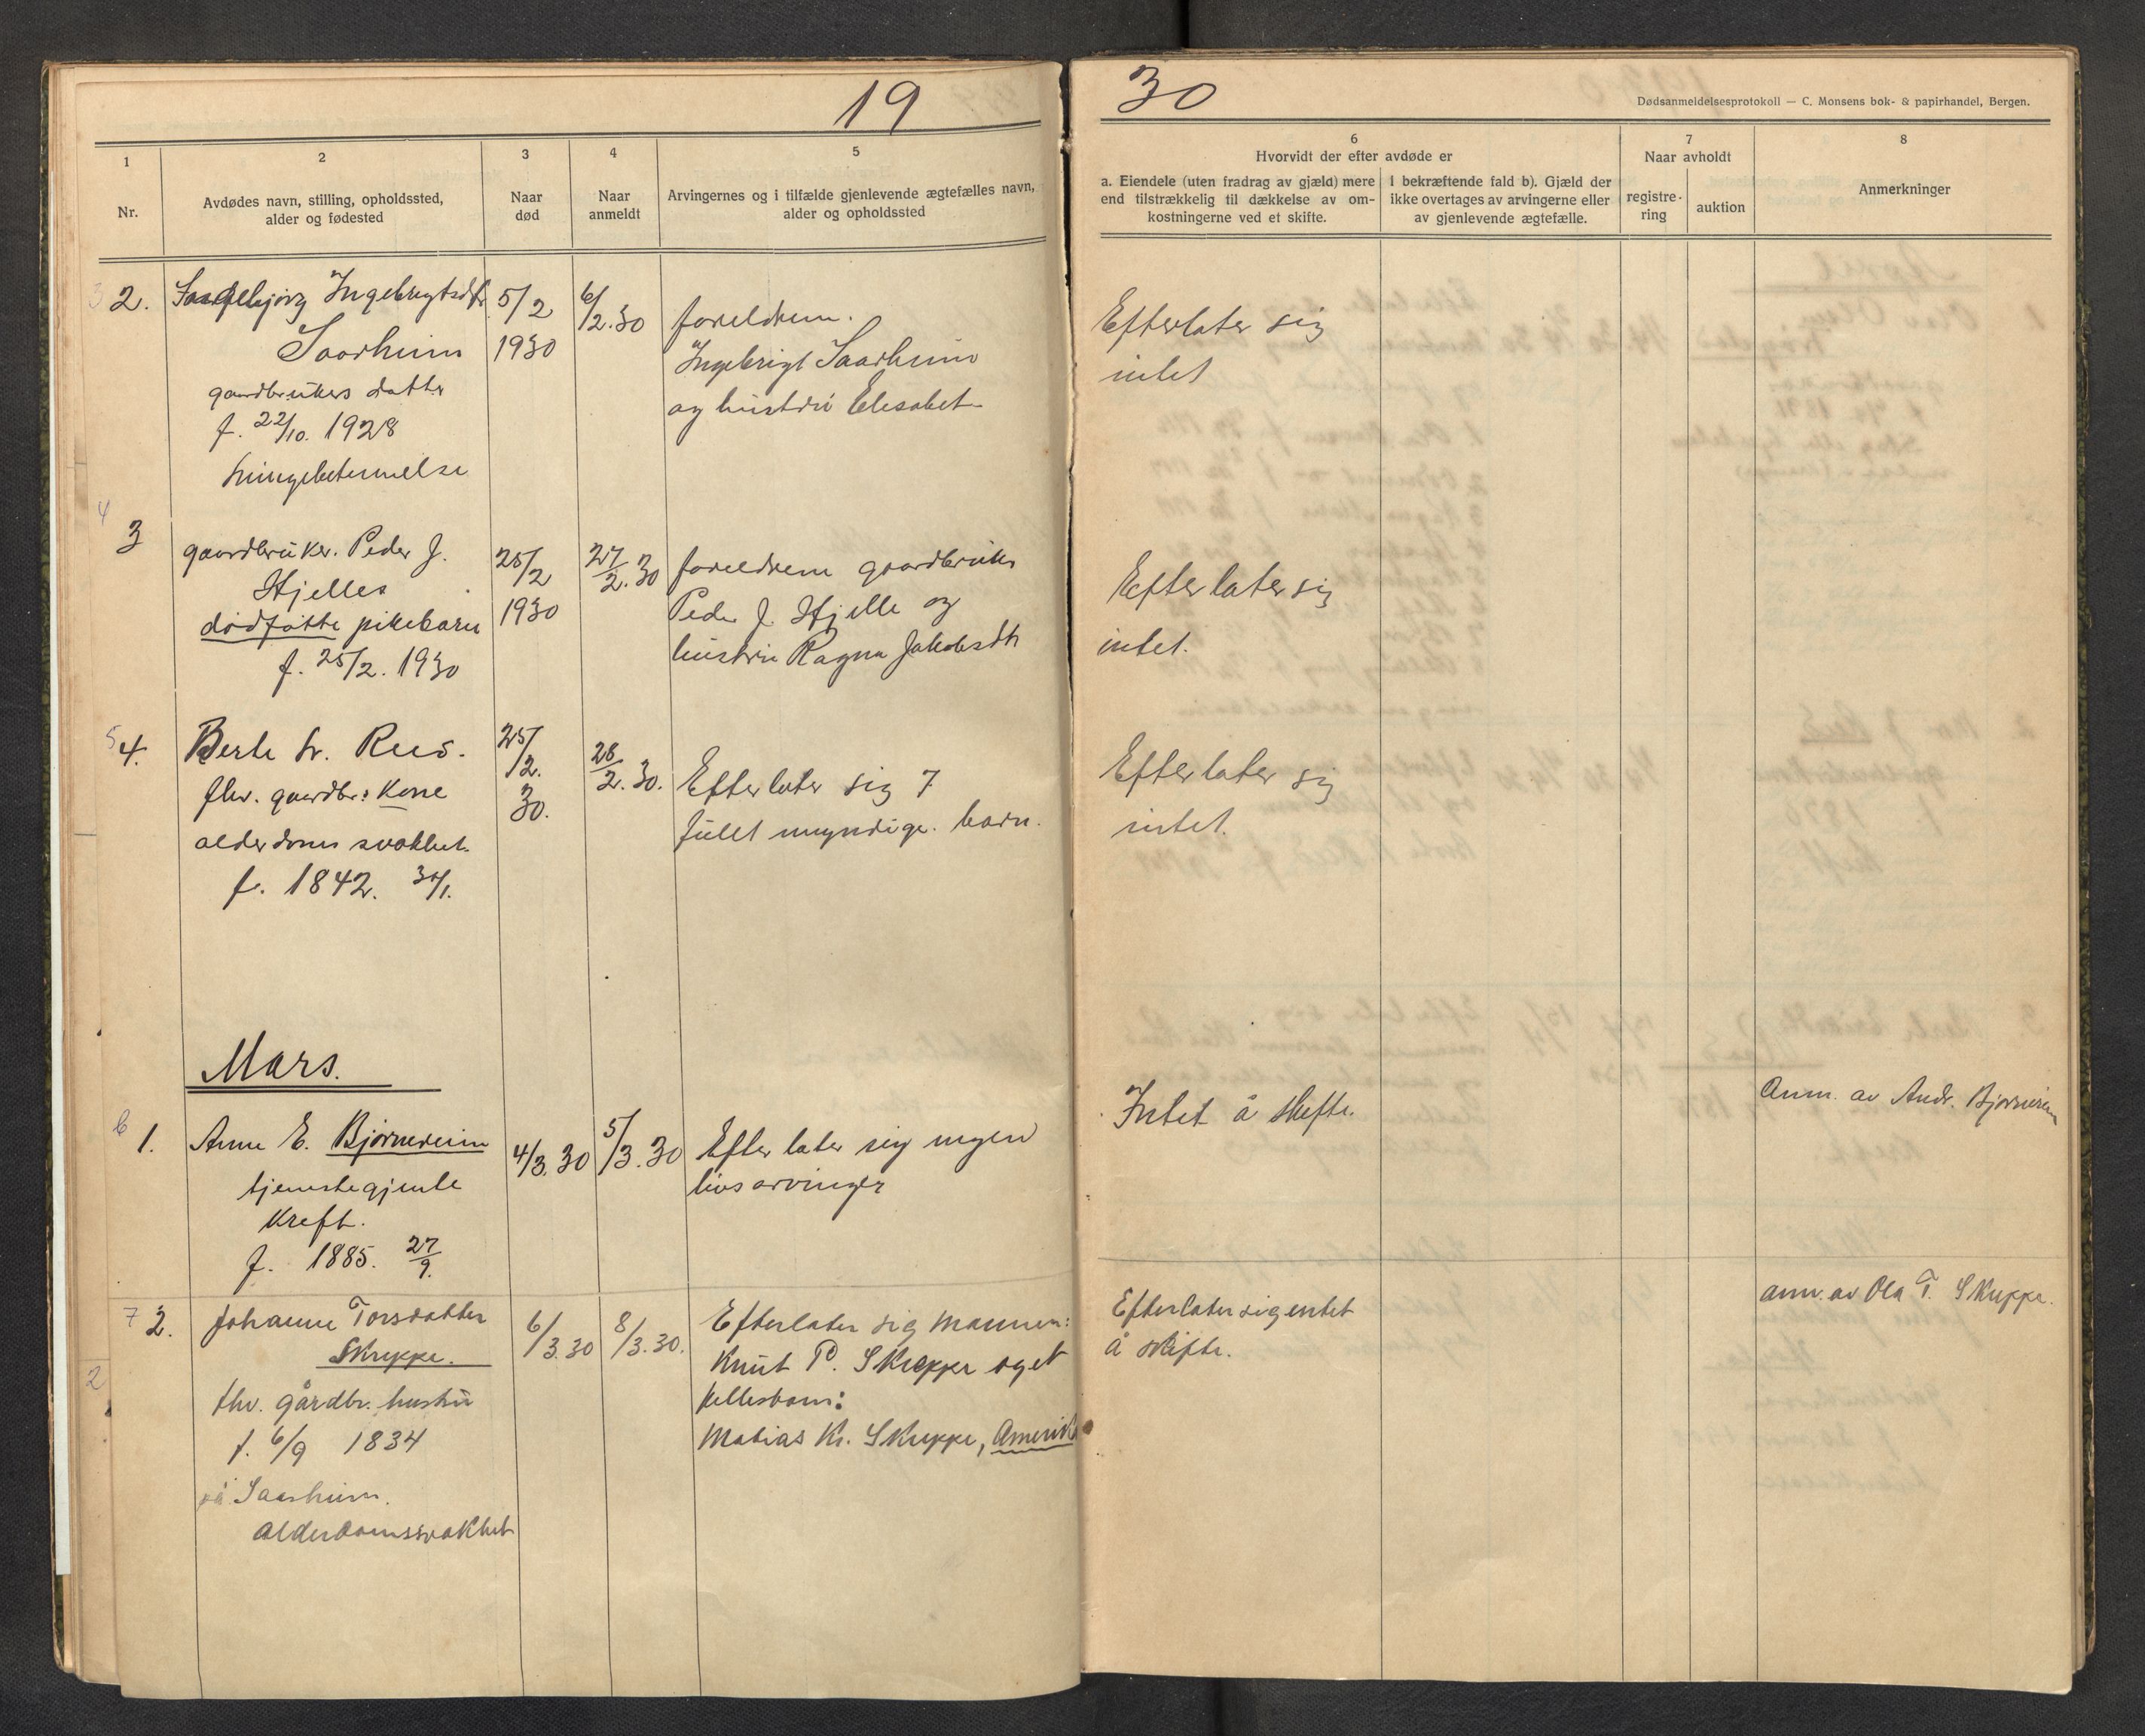 19
30
Dødsanmeldelsesprotokoll — C. Monsens bok- & papirhandel, Bergen.
1
2
3
4
5
6
7
8
Nr.
Avdødes navn, stilling, opholdssted,
alder og fødested
Naar
død
Naar
anmeldt
Arvingernes og i tilfælde gjenlevende ægtefælles navn,
alder og opholdssted
Hvorvidt der efter avdøde er
a. Eiendele (uten fradrag av gjæld) mere
end tilstrækkelig til dækkelse av om-
kostningerne ved et skifte.
I bekræftende fald b). Gjæld der
ikke overtages av arvingerne eller
av gjenlevende ægtefælle.
Naar avholdt
registre-
ring
auktion
Anmerkninger
3 2.
Ingebrigtsdtr
Saarheim
gaardbrukers datter
f. 22/10. 1928
5/2
1930
6/2.30
foreldrene.
Ingebrigt Saarheim
og hustru Elesabet
Efterlater sig
intet
4
3
gaardbruker Peder J.
Hjelles
dødføtte pikebarn
f. 25/2. 1930
25/2
1930
27/2.30
foreldrene gaardbruker
Peder J. Hjelle og
hustru Ragna Jakobsdtr
Efterlater sig
intet.
5 4.
Berte Rees.
fhv. gaardbr. Kone
alderdoms svakhet.
f. 1842.
25/2.
30.
28/2.30.
Efterlater sig 7
fullt myndige barn.
Efterlater sig
intet.
Mars.
6 1.
Anne E. Bjørnereim
tjenestegjente
Kreft.
f. 1885. 27/9.
4/3.30
5/3.30
Efterlater sig ingen
livsarvinger
Intet å skifte.
Anm. av Andr. Bjørnereim
7 2.
Johanne Torsdatter
Skreppe.
fhv. gårdbr. hustru
f. 6/9 1834
på Saarheim.
Alderdomssvakhet
6/3.30
8/3.30.
Efterlater sig mannen:
Knut P. Skreppe og et
fellesbarn:
Matias Kr. Skreppe, Amerika
Efterlater sig intet
å skifte.
anm. av Ola T. Skreppe.
2